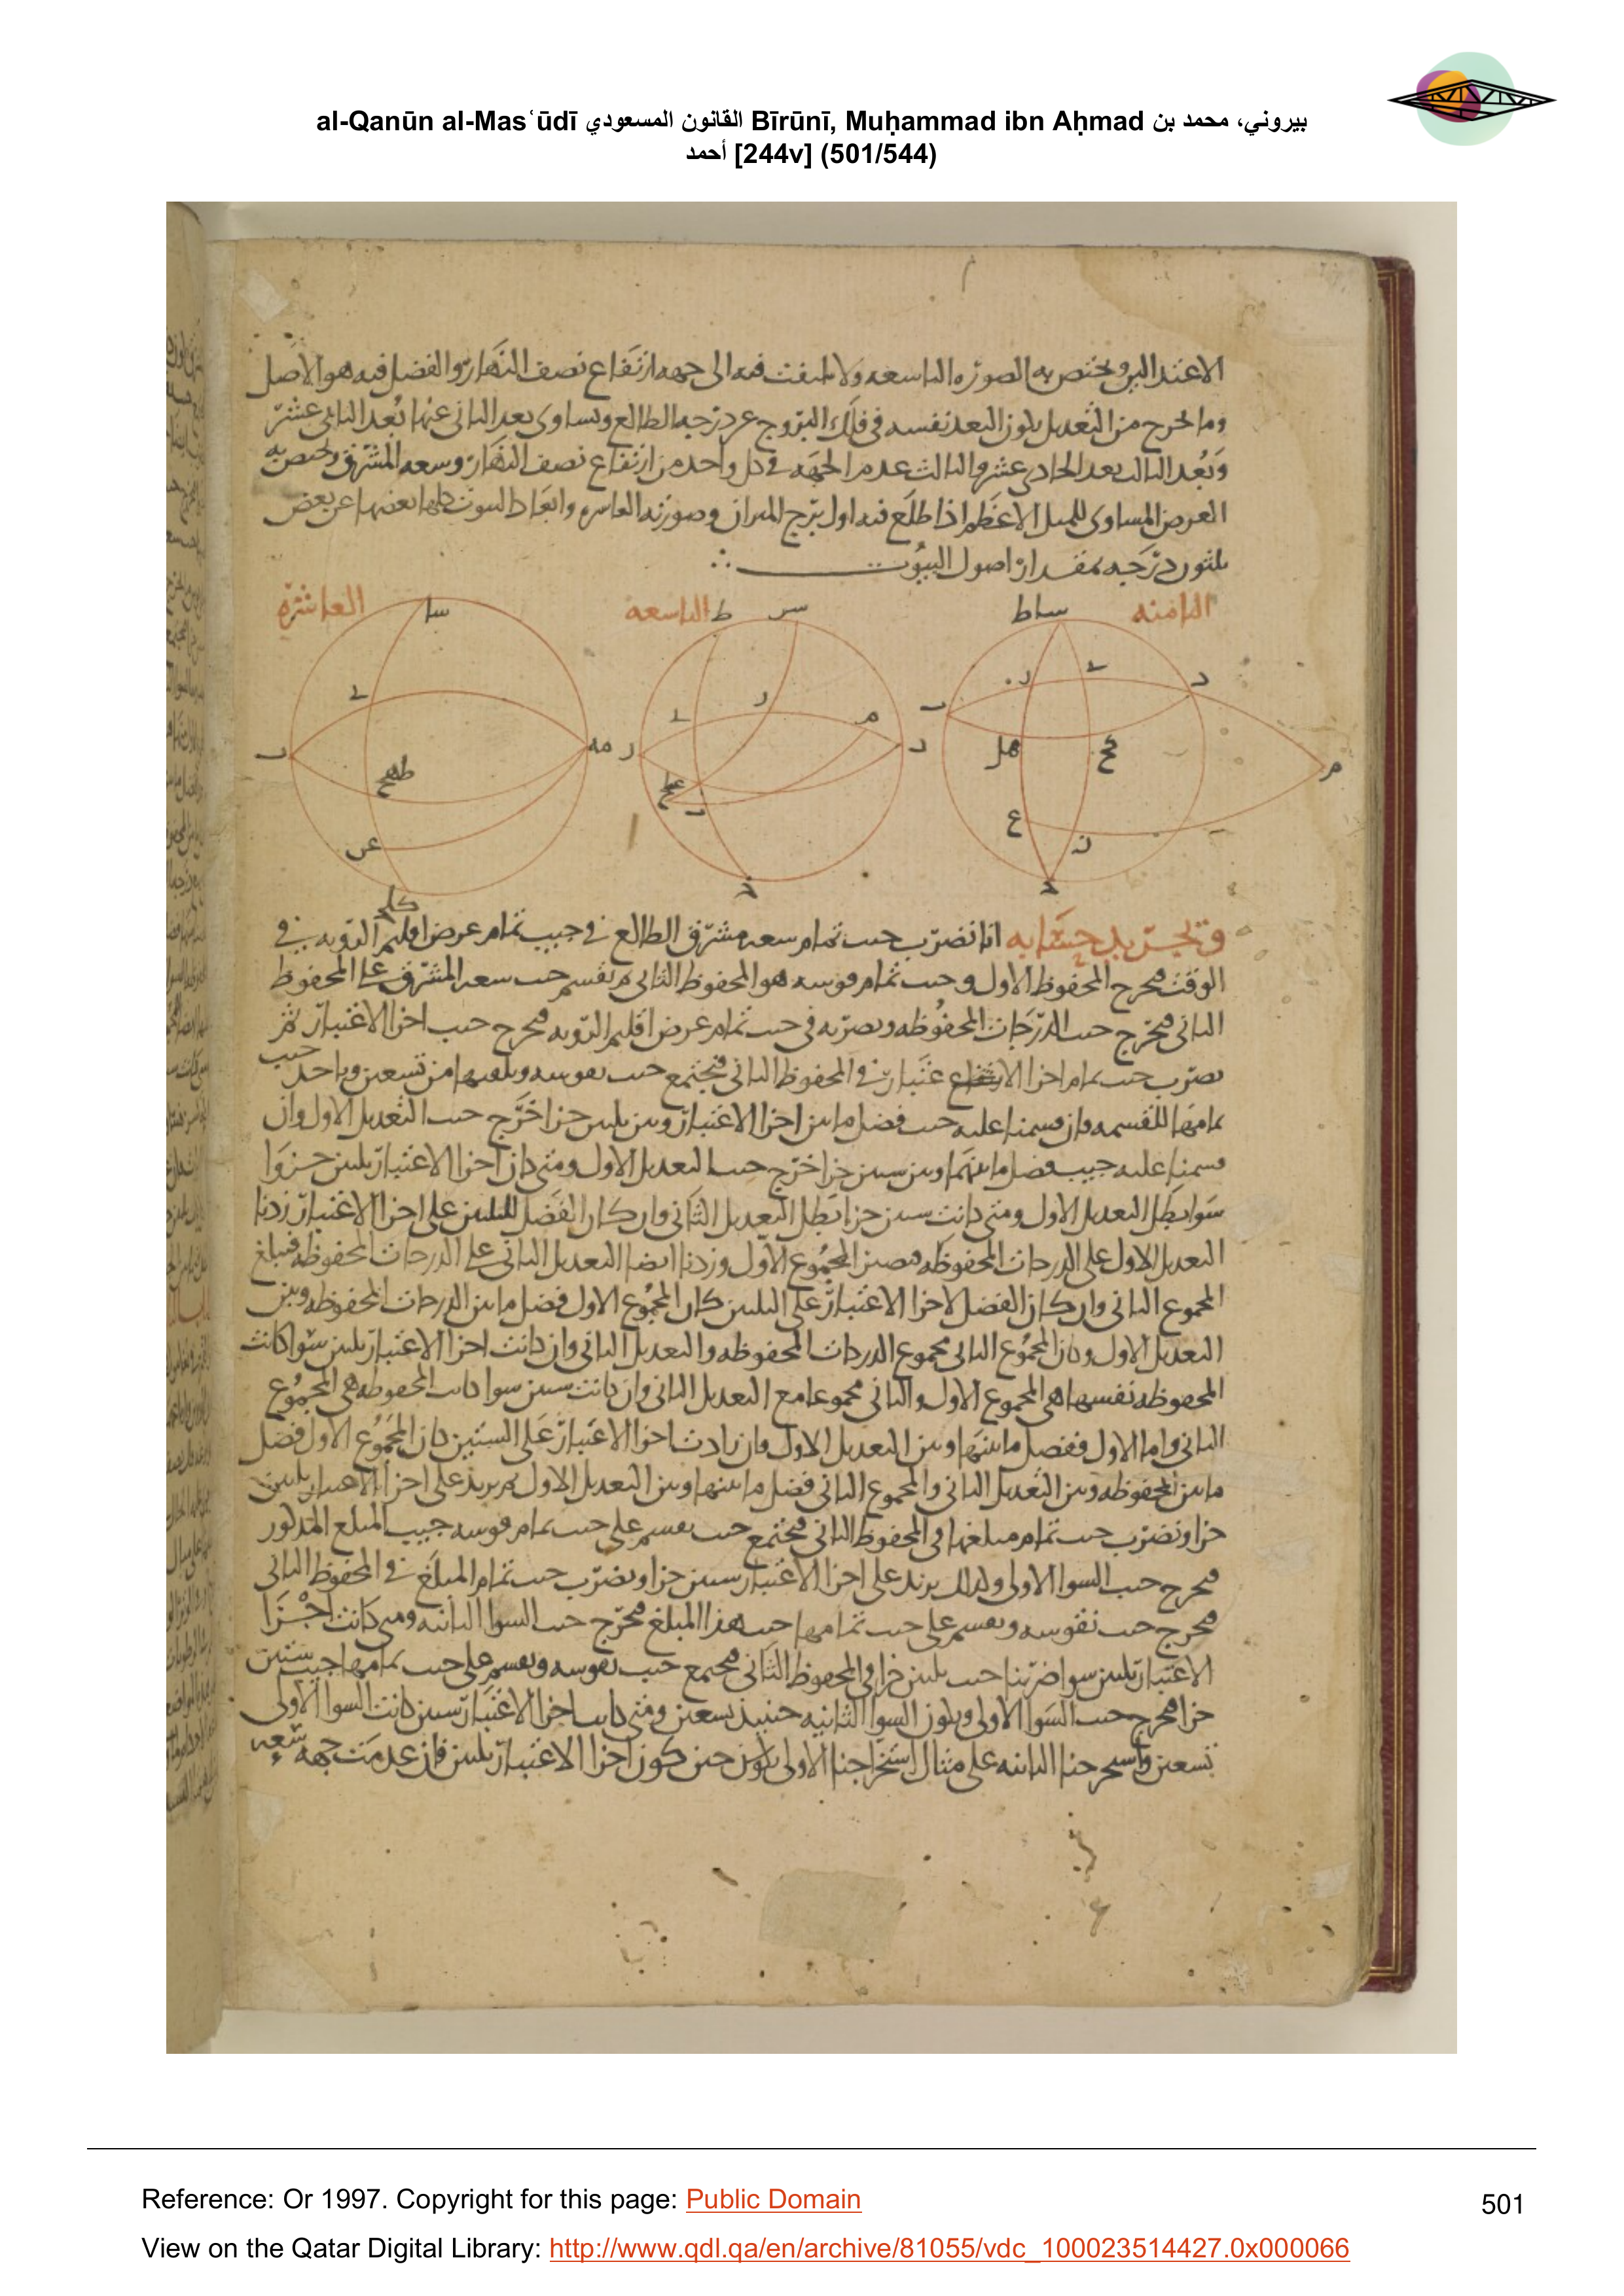 al-Qanūn al-Masʿūdī القانون المسعودي Bīrūnī, Muḥammad ibn Aḥmad بيروني، محمد بن
أحمد [244v] (501/544)
الاعتدالين ويختص به الصورة التاسعة ولا يلتفت فيه الى جهة ارتفاع نصف النهار والفضل فيه هو الاصل
وما يخرج من التعديل يكون البعد نفسه في فلك البروج عن درجة الطالع ويساوى بعد الثانى عنها بعد الثانى عشر
وبعد الثالث بعد الحادى عشر والثالث عدم الجهة في كل واحد من ارتفاع نصف النهار وسعة المشرق ويختص به
العرض المساوى للميل الاعظم اذا طلع فيه اول برج الميزان وصورته العاشرة وابعاد البيوت كلها بعضها عن بعض
ثلثون درجة بمقدار اصول البيوت
الثامنة
التاسعة
العاشرة
وتجريد حسابه انا نضرب جيب تمام سعة مشرق الطالع في جيب تمام عرض اقليم الروية في
الوقت فيخرج المحفوظ الاول وجيب تمام قوسه هو المحفوظ الثانى ثم نقسم جيب سعة المشرق على المحفوظ
الثانى فيخرج جيب الدرجات المحفوظة ونضربه في جيب تمام عرض اقليم الروية فيخرج جيب اجزا الاعتبار ثم
نضرب جيب تمام اجزا الاعتبار في المحفوظ الثانى فيجتمع جيب نقوسه ونلقيها من تسعين وناخذ جيب
تمامها للقسمة فان قسمنا عليه جيب فضل ما بين اجزا الاعتبار وبين ثلثين جزا خرج جيب التعديل الاول وان
قسمنا عليه جيب فضل ما بينهما وبين ستين جزا خرج جيب التعديل الاول ومتى كان اجزا الاعتبار ثلثين جزوا
سوا بطل التعديل الاول ومتى كانت ستين جزا بطل التعديل الثانى وان كان الفضل للثلثين على اجزا الاعتبار زدنا
التعديل الاول على الدرجات المحفوظة فيصير المجموع الاول وزدنا ايضا التعديل الثانى على الدرجات المحفوظة فيبلغ
المجموع الثانى وان كان الفضل لاجزا الاعتبار على الثلثين كان المجموع الاول فضل ما بين الدرجات المحفوظة وبين
التعديل الاول وكان المجموع الثانى مجموع الدرجات المحفوظة والتعديل الثانى وان كانت اجزا الاعتبار ثلثين سوا كانت
المحفوظة نفسها هي المجموع الاول والثانى مجموعا مع التعديل الثانى وان كانت ستين سوا كانت المحفوظة هي المجموع
الثانى واما الاول ففضل ما بينها وبين التعديل الاول وان زادت اجزا الاعتبار على الستين كان المجموع الاول فضل
ما بين المحفوظة وبين التعديل الثانى والمجموع الثانى فضل ما بينها وبين التعديل الاول ثم نزيد على اجزا الاعتبار ثلثين
جزا ونضرب جيب تمام مبلغها في المحفوظ الثانى فيجتمع جيب نقسم على جيب تمام قوسه جيب المبلغ المذكور
فيخرج جيب السوا الاولى وكذلك نزيد على اجزا الاعتبار ستين جزا ونضرب جيب تمام المبلغ في المحفوظ الثانى
فيخرج جيب نقوسه ونقسم على جيب تمامها جيب هذا المبلغ فيخرج جيب السوا الثانية ومتى كانت اجزا
الاعتبار ثلثين سوا ضربنا جيب ثلثين جزا في المحفوظ الثانى فيجتمع جيب نقوسه ونقسم على جيب تمامها جيب ستين
جزا فيخرج جيب السوا الاولى ويكون السوا الثانية حينيذ تسعين ومتى كانت اجزا الاعتبار ستين كانت السوا الاولى
تسعين واستخرجنا الثانية على مثال استخراجنا الاولى حين كون اجزا الاعتبار ثلثين فان عدمت جهة سعة
Reference: Or 1997. Copyright for this page: Public Domain
501
View on the Qatar Digital Library: http://www.qdl.qa/en/archive/81055/vdc_100023514427.0x000066